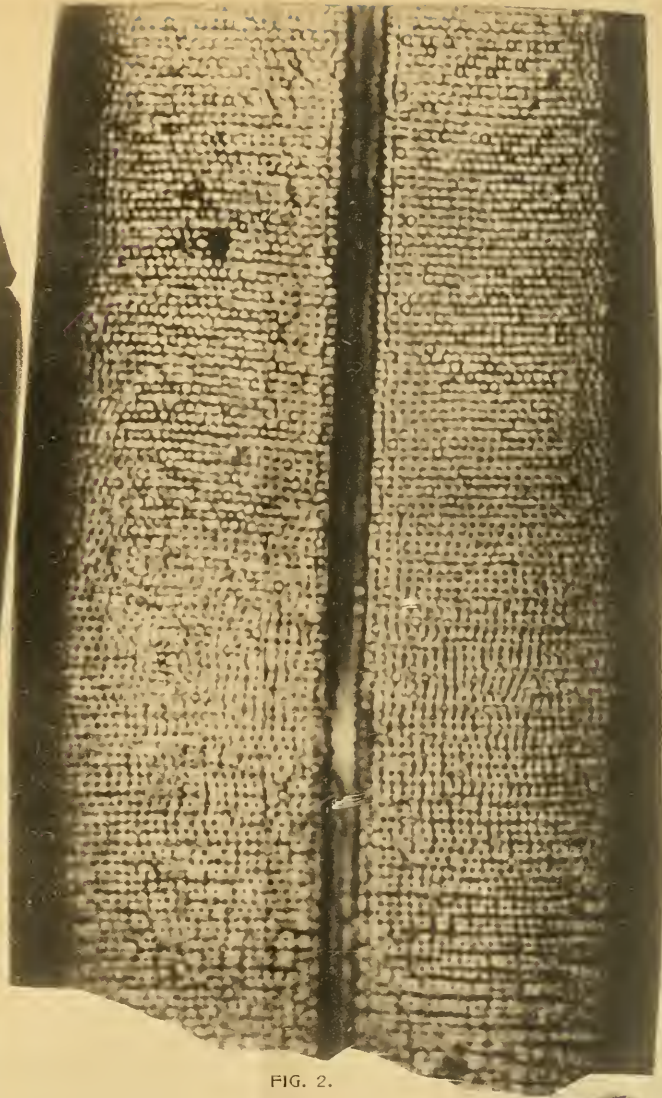 FIG. 2.